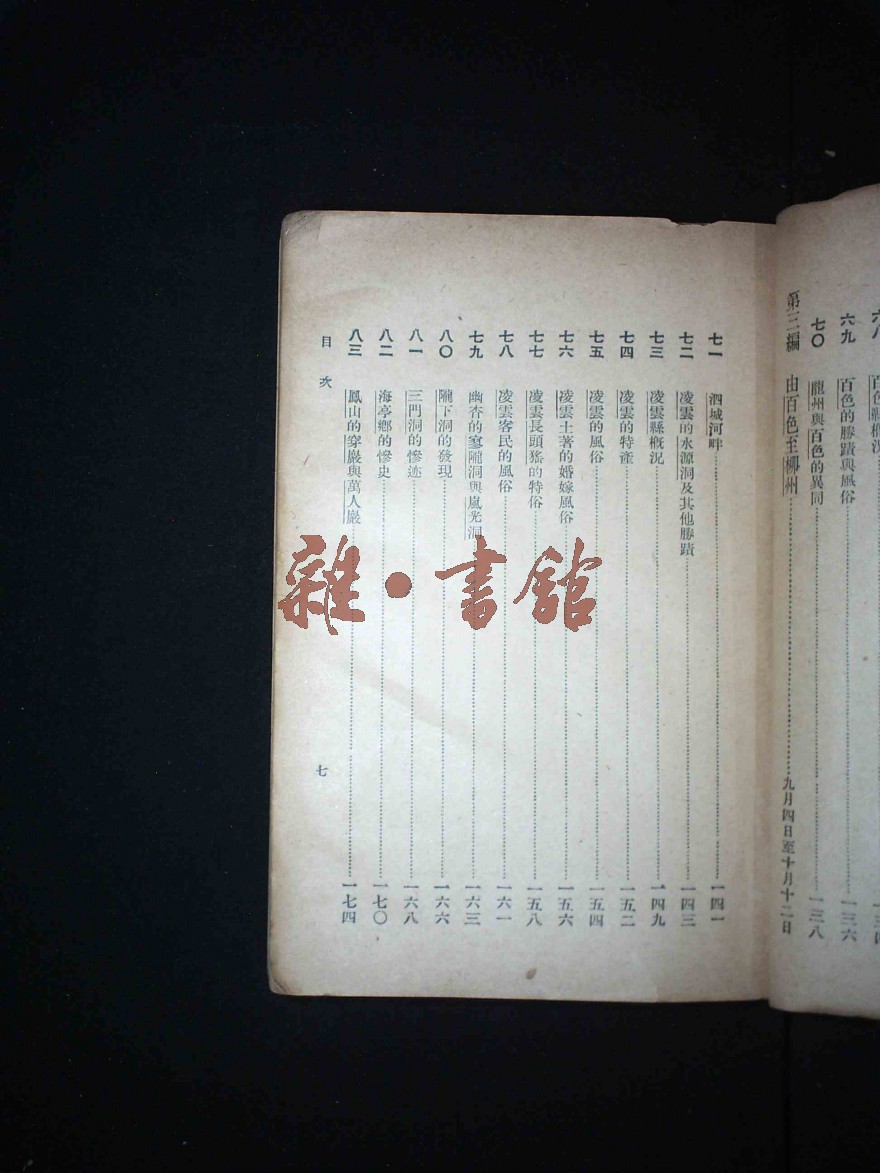 六八 百色縣概況……一三四
六九 百色的勝蹟與風俗……一三六
七〇 龍州與百色的異同……一三八
第三編 由百色至柳州……九月四日至十月十二日
七一 泗城河畔……一四一
七二 凌雲的水源洞及其他勝蹟……一四三
七三 凌雲縣概況……一四九
七四 凌雲的特產……一五二
七五 凌雲的風俗……一五四
七六 凌雲土著的婚嫁風俗……一五六
七七 凌雲長頭猺的特俗……一五八
七八 凌雲客民的風俗……一六一
七九 幽杳的寥隴洞與嵐光洞……一六三
八〇 隴下洞的發現……一六六
八一 三門洞的慘迹……一六八
八二 海亭鄉的慘史……一七〇
八三 鳳山的穿巖與萬人巖……一七四
目次 七
雜·書館